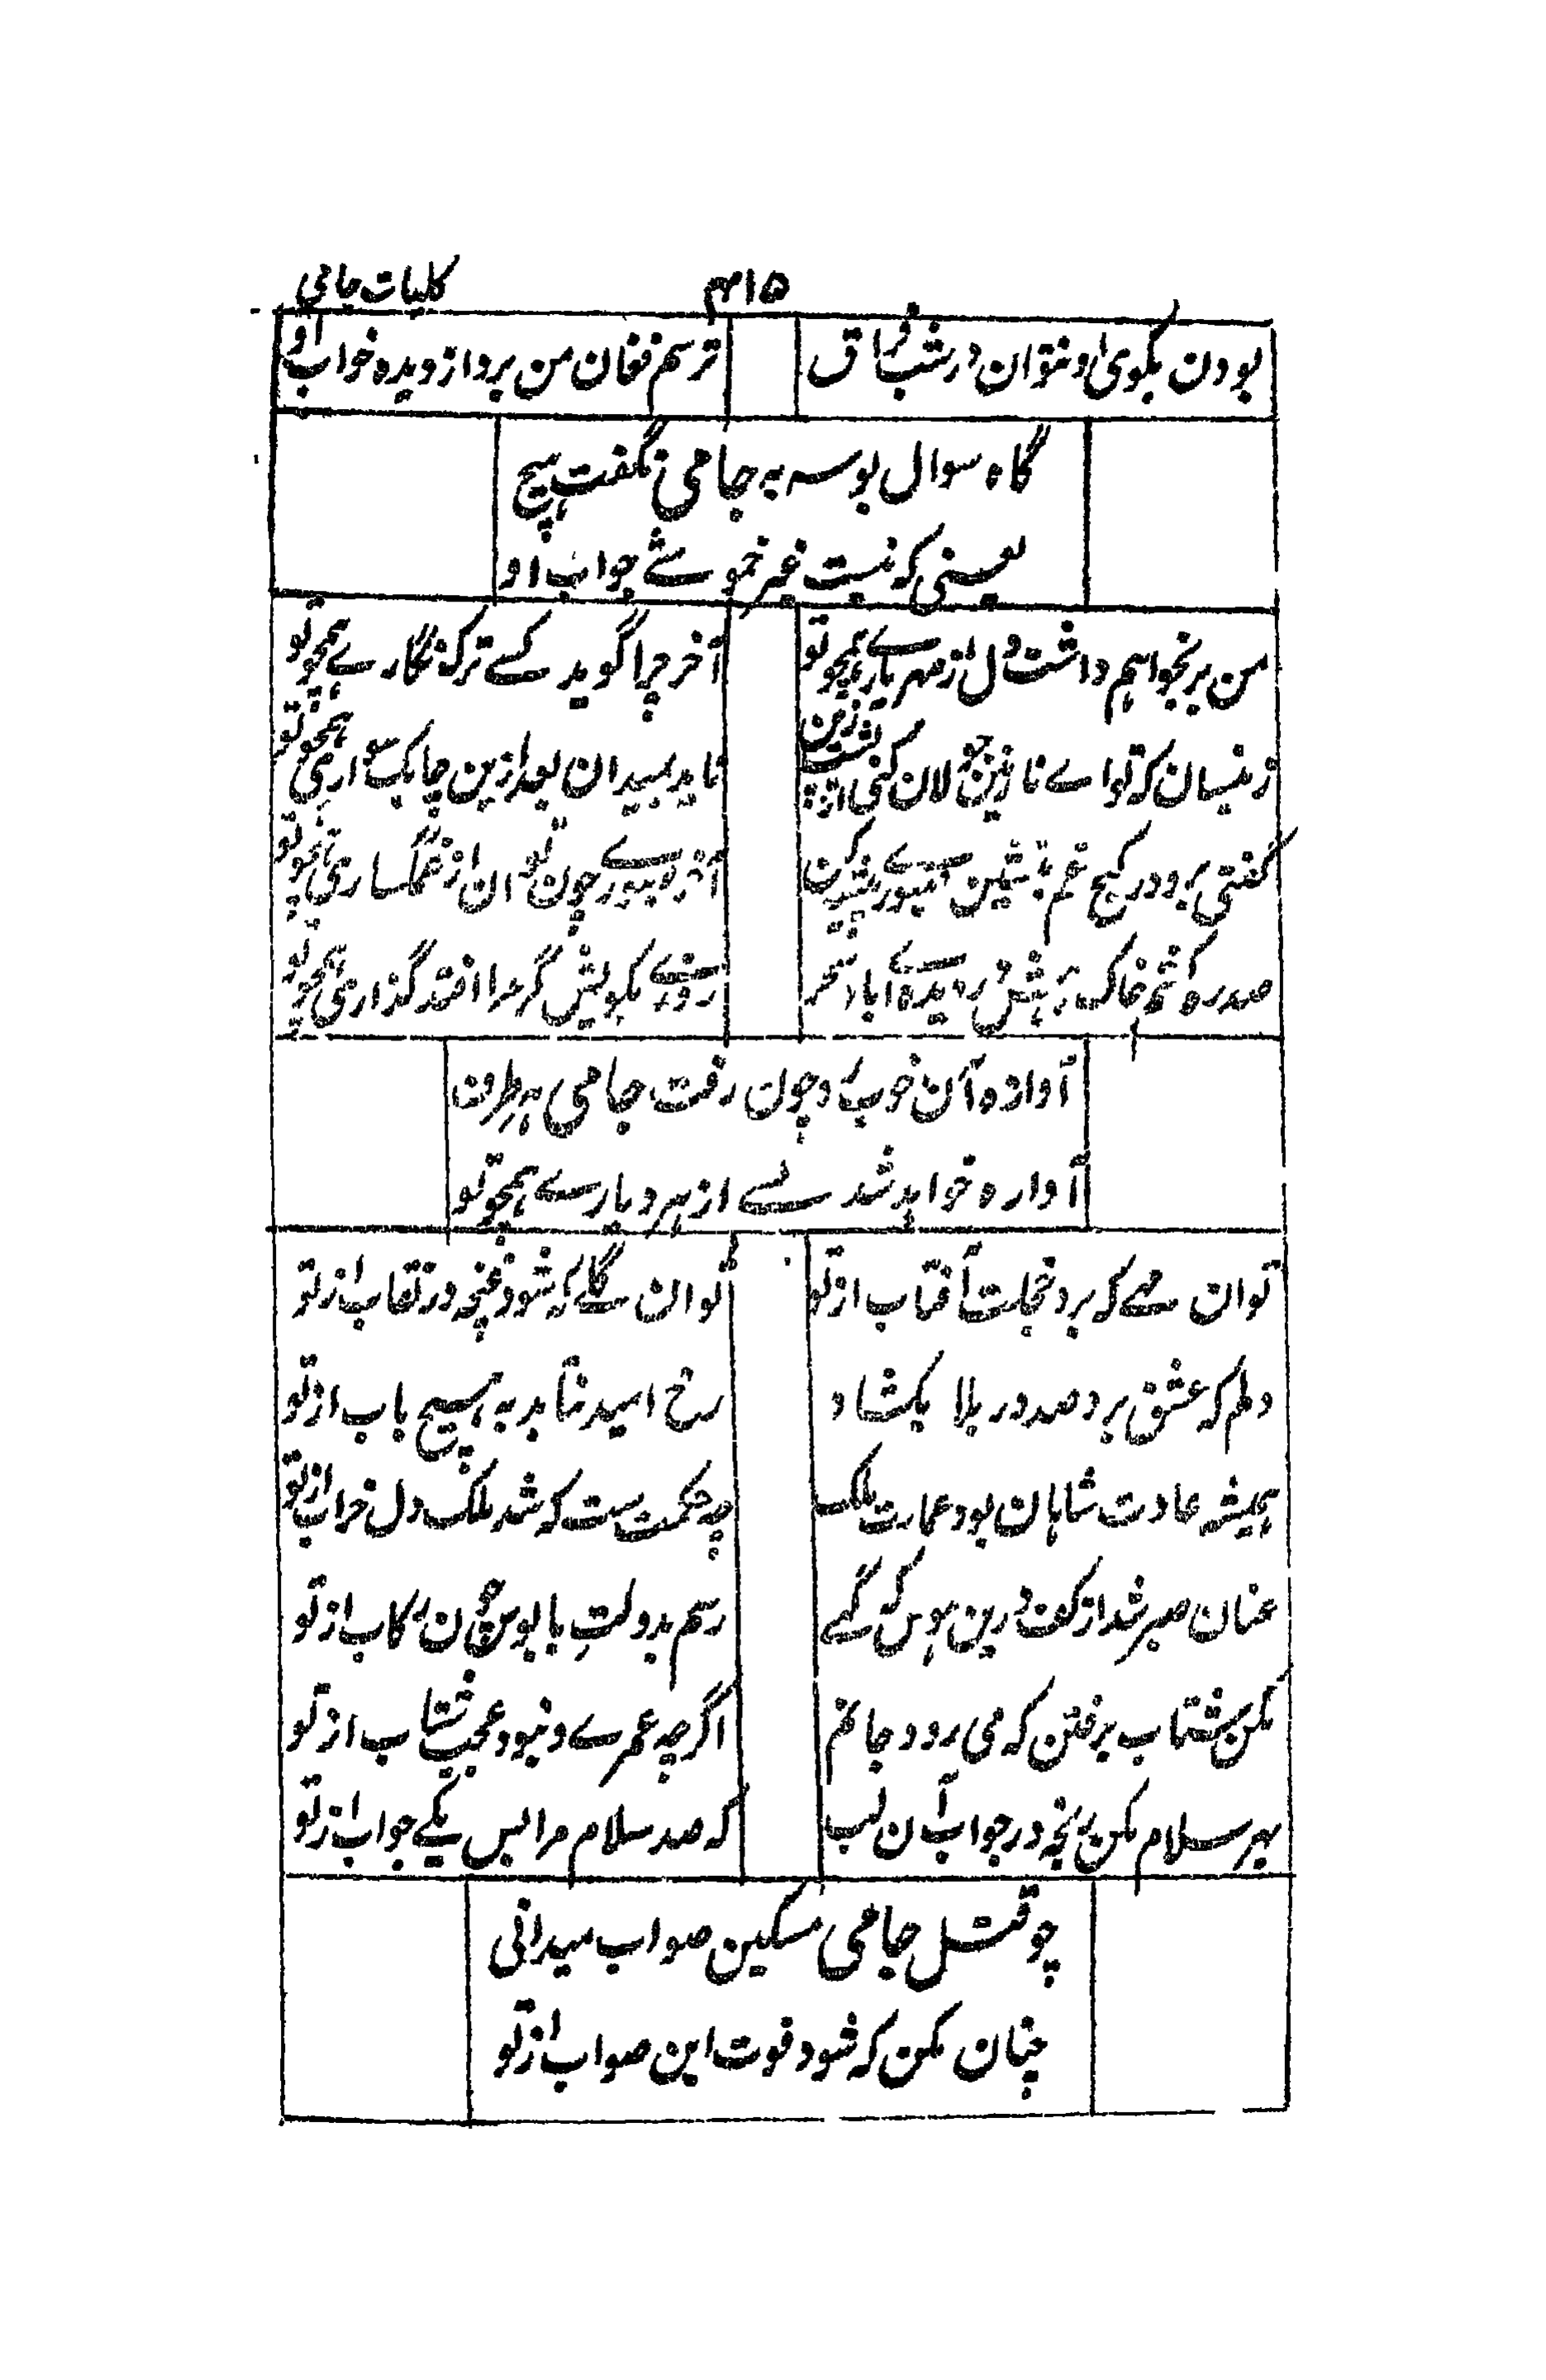 کلیات جامی
۴۱۵
بودن بکوی او نتوان در شب فراق
ترسم فغان من برد از دیده خواب او
گاه سوال بوسه به جامی نگفت هیچ
یعنی که نیست غیر خموشے جواب او
من برنخواهم داشت دل از مهر یارے همچو تو
آخر چرا گوید کسے ترک نگارے همچو تو
زینسان که تو اے نازنین جولان کنی از پشت زین
ناید بمیدان بعد ازین چابک سواری همچو تو
گفتی برو در کنج غم بنشین صبورے پیشه کن
آخر صبورے چون توان از غمگساری همچو تو
صد ره کشم خاک رهش در دیدهٔ اے باد سحر
روزے بکویش گر مرا افتد گذاری همچو تو
آوازه آن خوبرو چون رفت جامی هر طرف
آواره خواهد شد بسے از هر دیارے همچو تو
تو آن مهے که برد خجلت آفتاب از تو
تو آن گلے که شود غنچه در نقاب از تو
دلم که عشق برو صد در بلا بکشاد
رخ امید نتابد به هیچ باب از تو
همیشه عادت شاهان بود عمارت ملک
چه حکمت ست که شد ملک دل خراب از تو
عنان صبر شد از کف درین هوس که گہے
رسم بدولتِ پابوس چون رکاب از تو
مکن شتاب برفتن که می رود جانم
اگرچه عمرے و نبود عجب شتاب از تو
بهر سلام مکن رنجه در جواب آن لب
که صد سلام مرا بس یکے جواب از تو
چو قتل جامی مسکین صواب میدانی
چنان مکن که شود فوت این صواب از تو